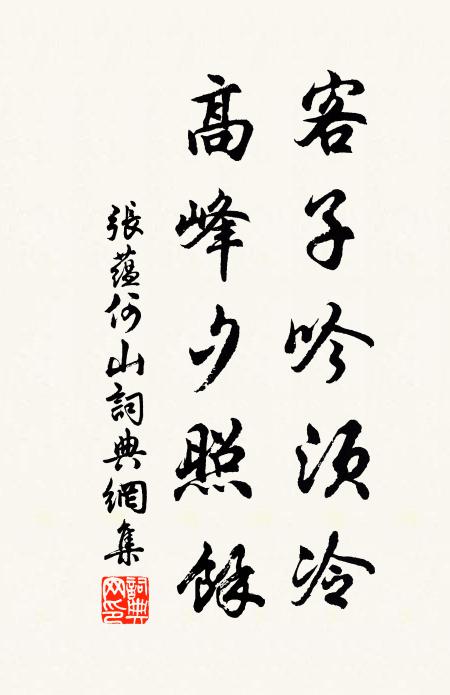 客子吟須冷
高峰夕照餘
張蘊何山詞典網集
詞典網印